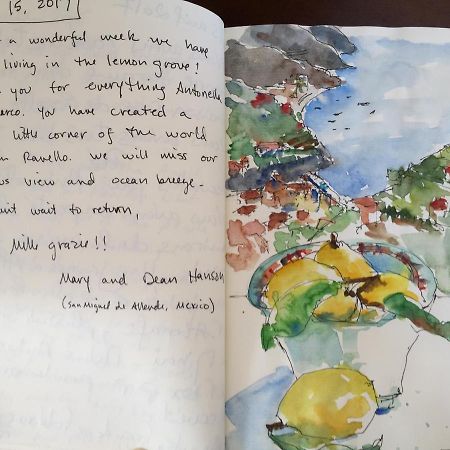 15, 2017
a wonderful week we have
living in the lemon grove!
you for everything Antonella
You have created a
little corner of the world
Ravello. We will miss our
view and ocean breeze-
wait to return,
Mille grazie!!
Mary and Dean Hansen
(San Miguel de Allende, Mexico)